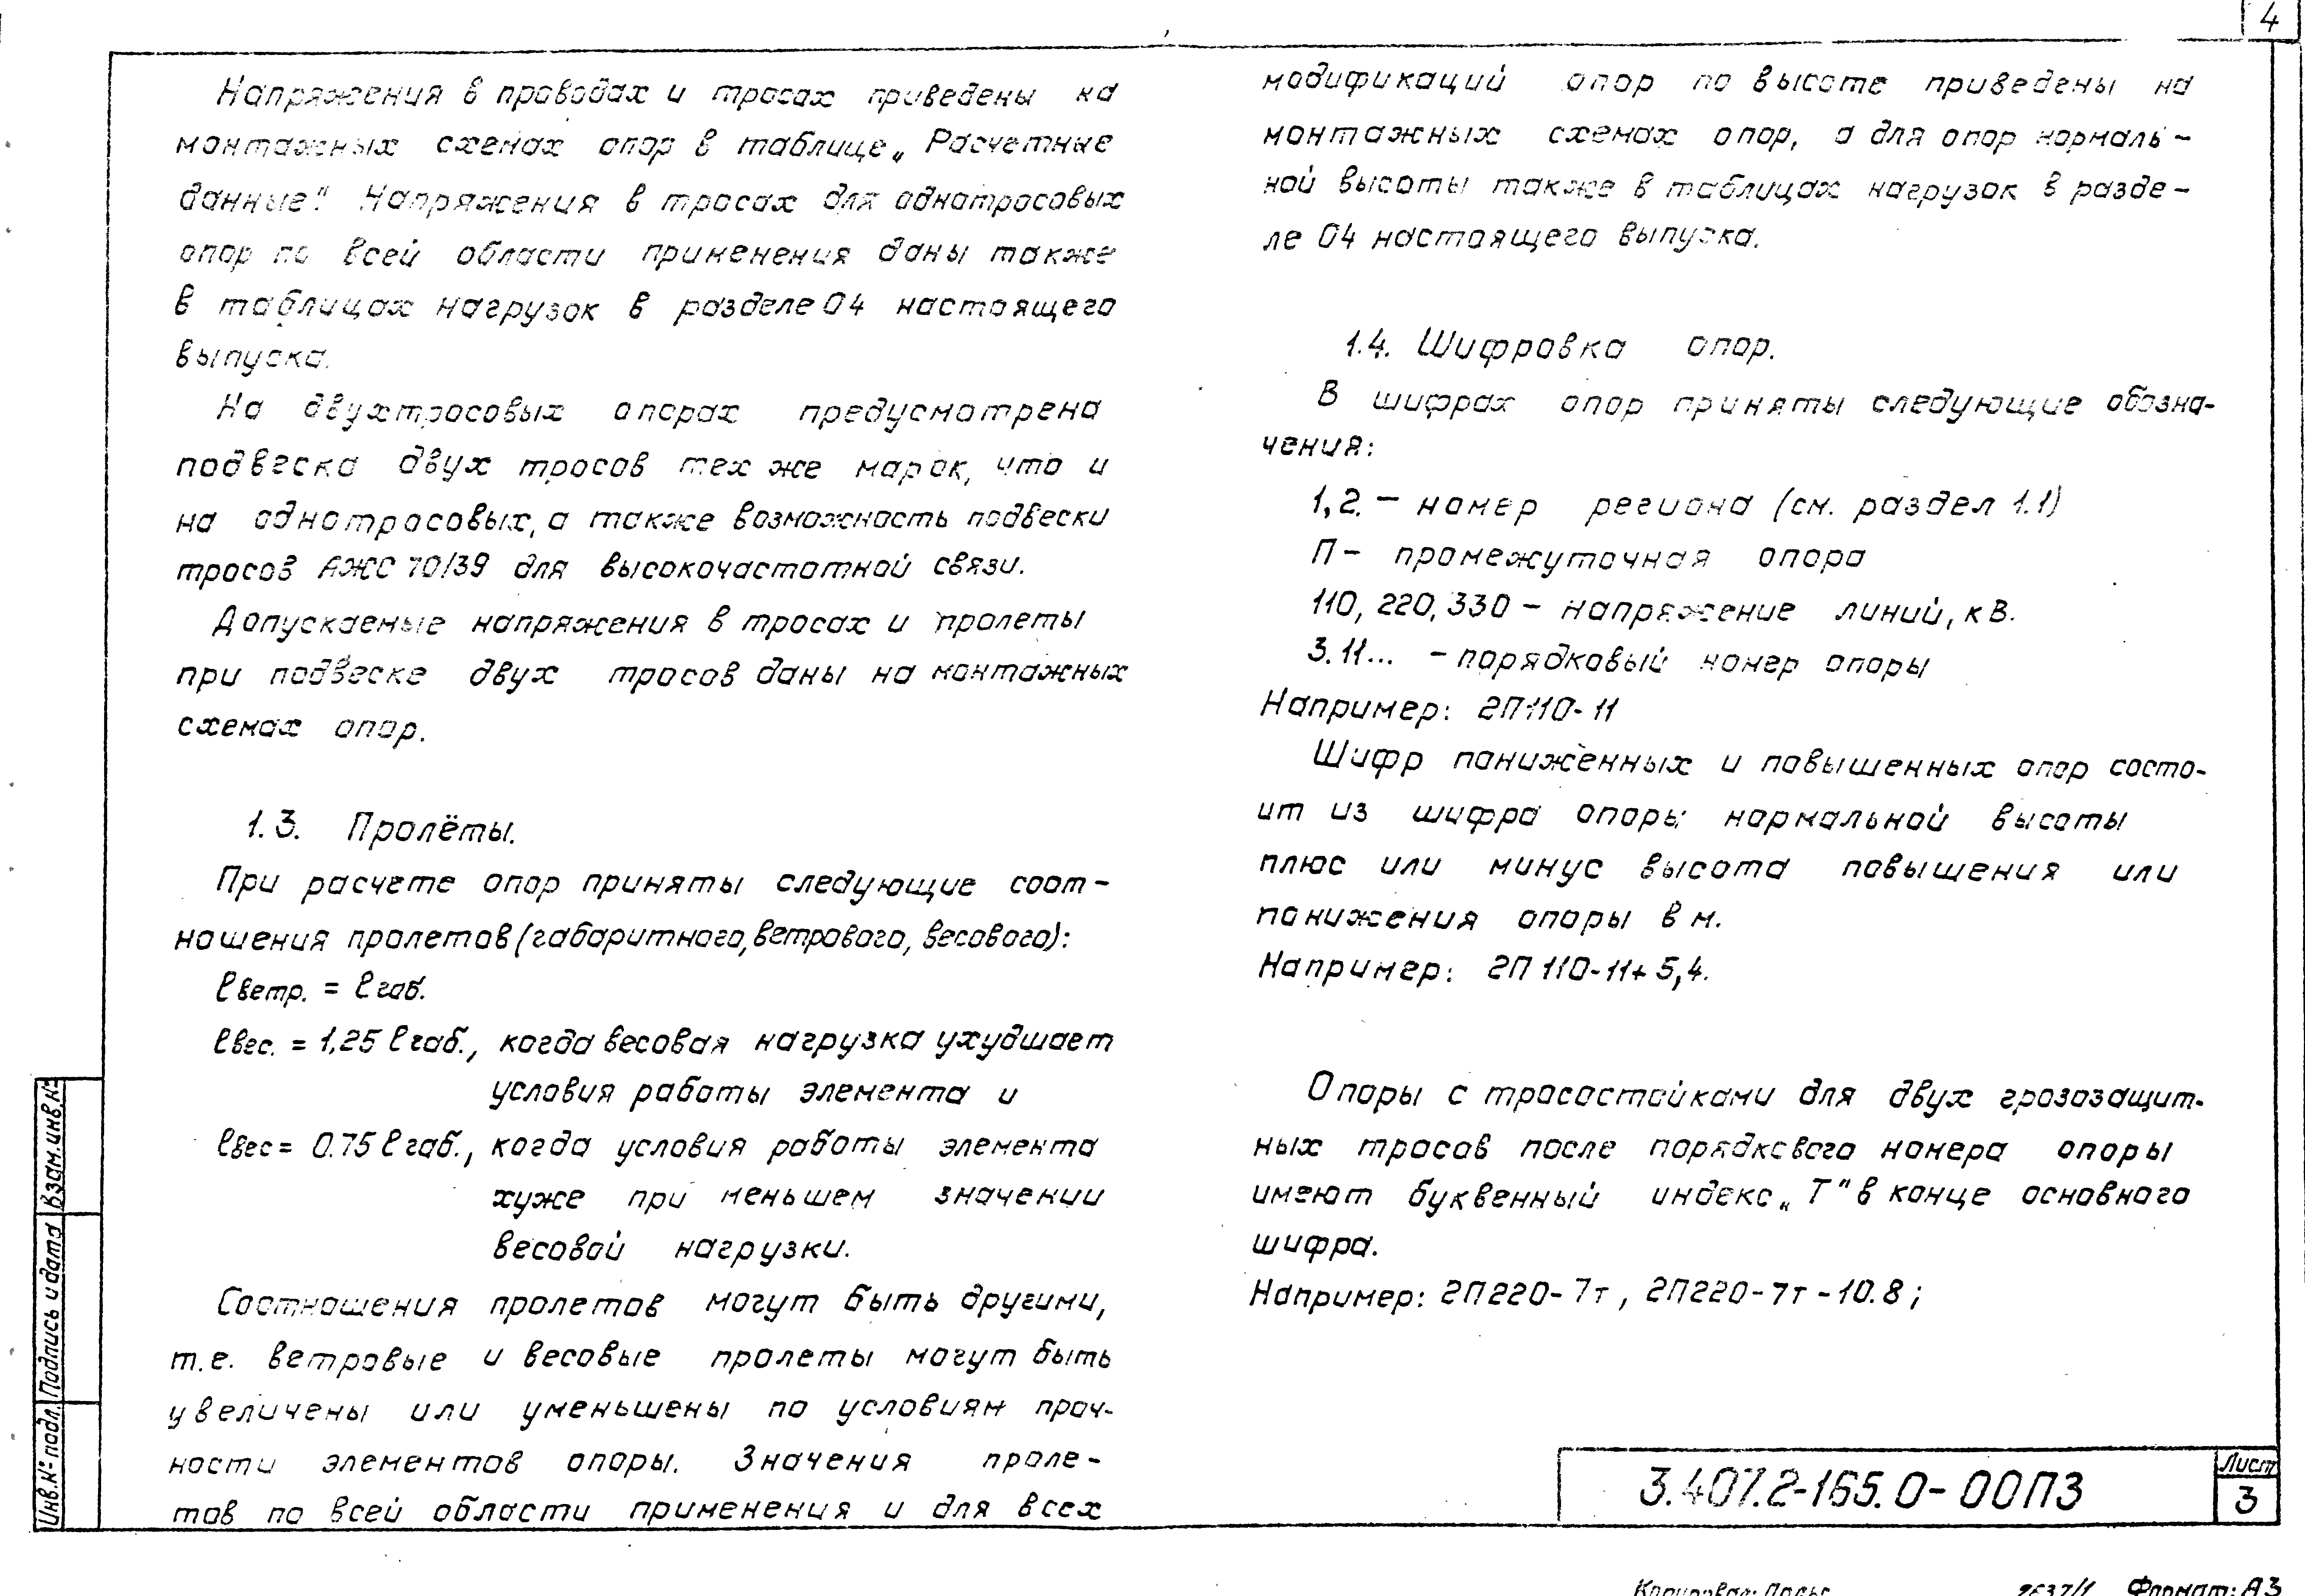 4
Напряжения в проводах и тросах приведены на
монтажных схемах опор в таблице „Расчетные
данные". Напряжения в тросах для однотросовых
опор по всей области применения даны также
в таблицах нагрузок в разделе 04 настоящего
выпуска.
На двухтросовых опорах предусмотрена
подвеска двух тросов тех же марок, что и
на однотросовых, а также возможность подвески
тросов АЖС 70/39 для высокочастотной связи.
Допускаемые напряжения в тросах и пролеты
при подвеске двух тросов даны на монтажных
схемах опор.
1.3. Пролёты.
При расчете опор приняты следующие соот-
ношения пролетов (габаритного, ветрового, весового):
ℓветр. = ℓгаб.
ℓвес. = 1,25 ℓгаб., когда весовая нагрузка ухудшает
условия работы элемента и
ℓвес = 0.75 ℓгаб., когда условия работы элемента
хуже при меньшем значении
весовой нагрузки.
Соотношения пролетов могут быть другими,
т.е. ветровые и весовые пролеты могут быть
увеличены или уменьшены по условиям проч-
ности элементов опоры. Значения проле-
тов по всей области применения и для всех
модификаций опор по высоте приведены на
монтажных схемах опор, а для опор нормаль-
ной высоты также в таблицах нагрузок в разде-
ле 04 настоящего выпуска.
1.4. Шифровка опор.
В шифрах опор приняты следующие обозна-
чения:
1,2. – номер региона (см. раздел 1.1)
П – промежуточная опора
110, 220, 330 – напряжение линий, кВ.
3.11... – порядковый номер опоры
Например: 2П110-11
Шифр пониженных и повышенных опор состо-
ит из шифра опоры нормальной высоты
плюс или минус высота повышения или
понижения опоры в м.
Например: 2П 110-11+5,4.
Опоры с тросостойками для двух грозозащит-
ных тросов после порядкового номера опоры
имеют буквенный индекс „Т" в конце основного
шифра.
Например: 2П220-7т, 2П220-7т-10.8;
Взам.инв.№
Подпись и дата
Инв.№ подл.
3.407.2-165.0-00ПЗ
Лист
3
Копировал:
Формат: А3